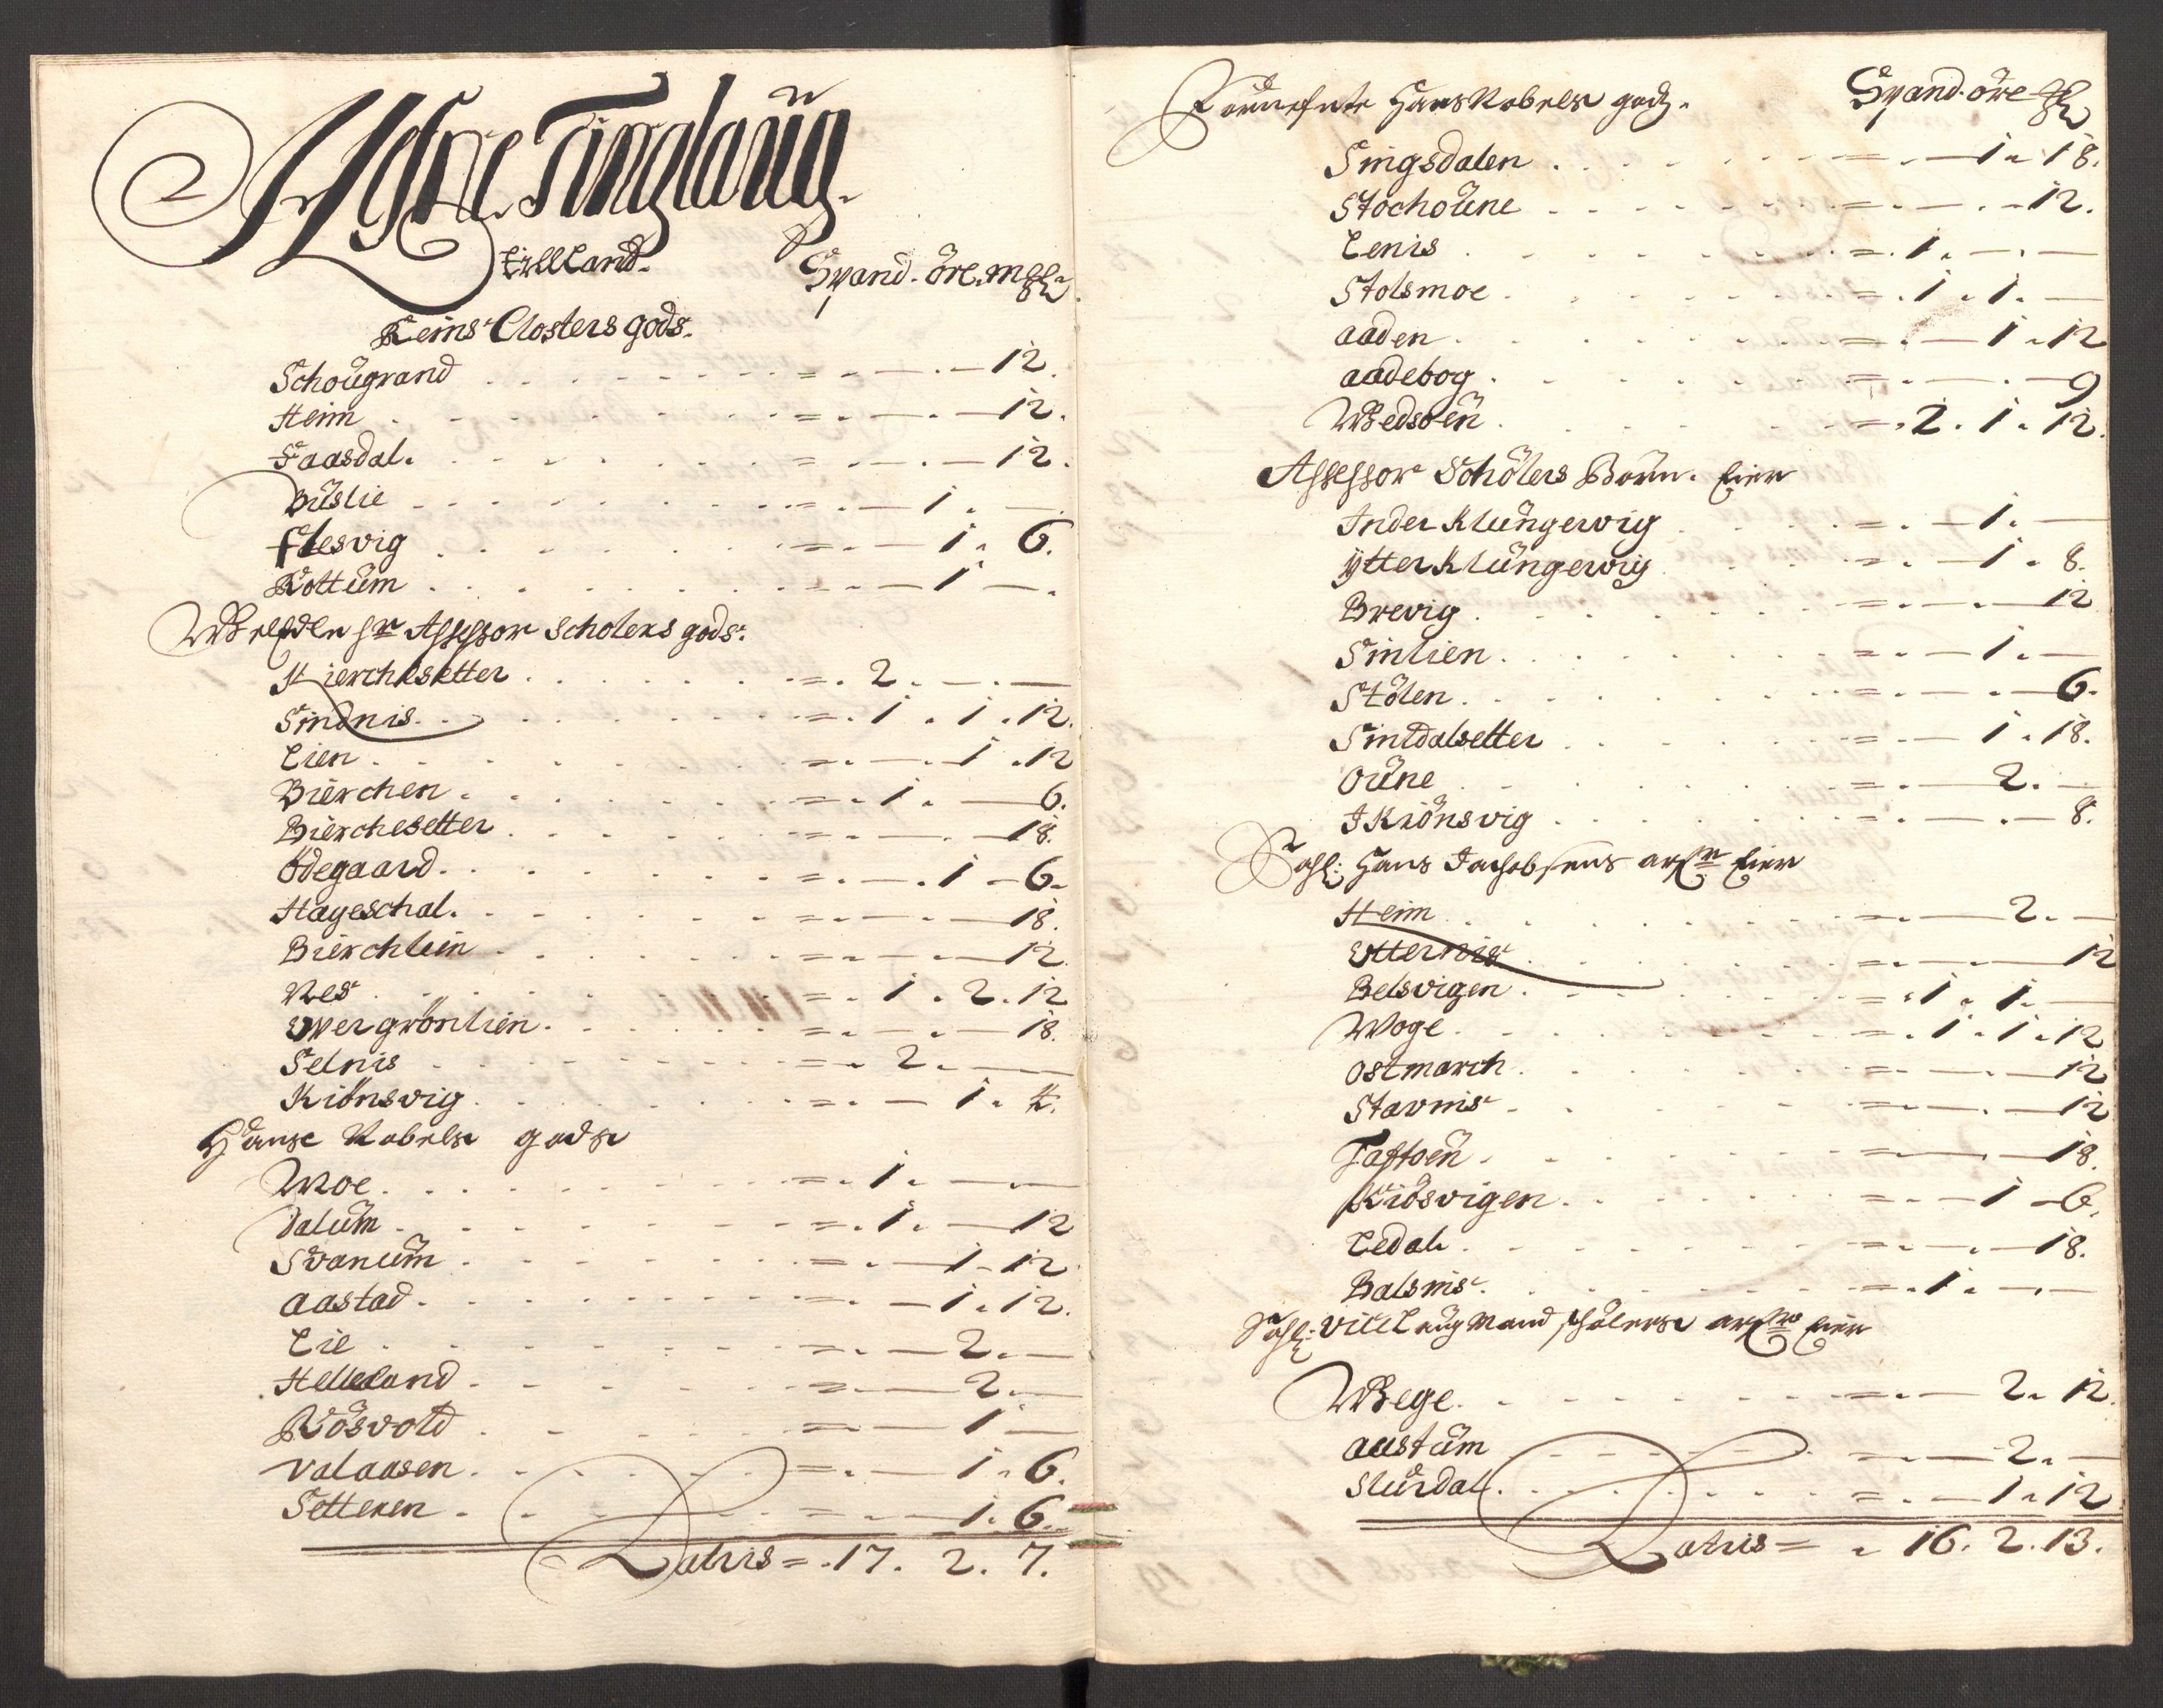 Ytre Tinglaug.
till Land. Spand. öre. mkl
Reins Closters gods.
Schougrand . . . = . — . — 12.
Heim . . . = . — . — 12.
Faasdal . . . = . — . — 12.
Buslie . . . = . — 1 . —
Flesvig . . . = . — 1 . 6.
Rottum . . . = . — 1 — .
Assessor Scholers gods.
Hierchesetter . . . = . 2 . — . —
Sindnis . . . = . 1 . 1 . 12.
Lien . . . = . — . 1 . 12
Bierchen . . . = . 1 . — 6.
Bierchesetter . . . = . — . — 18.
Ödegaard . . . = . — . 1 . 6.
Hageschal . . . = . — . — 18.
Bierchlein . . . = . — . — 12.
Nes . . . = . 1 . 2 . 12
Over grönlien . . . = . — . — 18.
Selnis . . . = . 2 . —
Kiönsvig . . . = . — 1 . 4.
Hanse Nobels gods
Moe . . . = . 1 . — . —
Dalum . . . = . 1 . — 12
Svanum . . . = . — 1 . 12
Aastad . . . = . — 1 . 12.
Lie . . . = . — 2 . —
Helleland . . . = . — 2 . —
Rösvold . . . = . — 1 —
Valaasen . . . = . — 1 . 6.
Setteren . . . = . — 1 . 6.
Latris = . 17. 2. 7.
Hans Nobels godz. Spand. öre
Singsdalen . . . = . — 1 . 18.
Stochoune . . . = . — . — 12.
Lenis . . . = . 1 . — . —
Stolsmoe . . . = . 1 . 1 . —
Aaden . . . = . — 1 . 12
Aadebog . . . = . — . — 9
Wedsöen . . . = . 2 . 1 . 12.
Assessor Schölers Börn. Eier
Inder Klüngervig . . . = . — 1 . —
Ytter Klüngervig . . . = . — 1 . 8.
Brevig . . . = . — . — 12
Sinlien . . . = . — 1 . —
Stölen . . . = . — . — 6.
Sintdalsetter . . . = . — 1 . 18.
Oüne . . . = . — 2 . —
I Kiönsvig . . . = . — . — 8.
Sahl: Hans Jachobsens arfr Eier
Heim . . . = . — 2 . —
Utternis . . . = . — . — 12
Belsvigen . . . = . 1 . 1 . —
Woge . . . = . 1 . 1 . 12
Ostmarch . . . = . — . — 12
Stavnis . . . = . — . — 12
Taftöen . . . = . — . — 18.
Kiösvigen . . . = . — 1 — 6.
Ledal . . . = . — . — 18.
Balsnis . . . = . 1 . — . —
Sahl: Vice Laugmand Schölers arfr Eier
Wege . . . = . — 2 . 12.
Austum . . . = . — 2 . —
Slürdal . . . = . — 1 . 12
Latris = . 16. 2. 13.